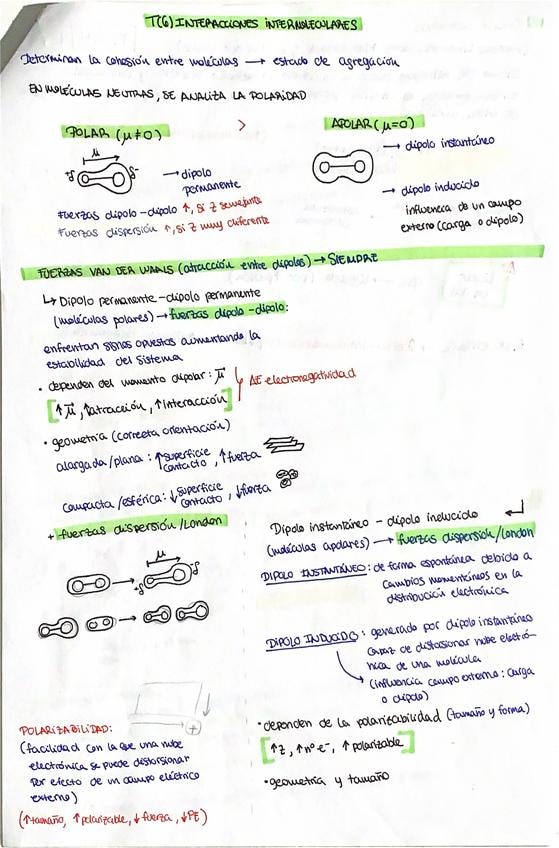 T(6) INTERACCIONES INTERMOLECULARES
Determinan la cohesión entre moléculas → estado de agregación
EN MOLÉCULAS NEUTRAS, SE ANALIZA LA POLARIDAD
POLAR (μ≠0) > APOLAR (μ=0)
μ
δ+ δ-
→ dipolo
permanente
Fuerzas dipolo-dipolo ↑, si Z semejante
Fuerzas dispersión ↑, si Z muy diferente
→ dipolo instantáneo
→ dipolo inducido
influencia de un campo
externo (carga o dipolo)
FUERZAS VAN DER WAALS (atracción entre dipolos) → SIEMPRE
↳ Dipolo permanente-dipolo permanente
(moléculas polares) → fuerzas dipolo-dipolo:
enfrentan signos opuestos aumentando la
estabilidad del sistema
• dependen del momento dipolar: μ⃗
ΔE electronegatividad
[↑μ⃗, ↑atracción, ↑interacción]
• geometría (correcta orientación)
alargada/plana: ↑superficie
contacto, ↑fuerza
compacta/esférica: ↓superficie
contacto, ↓fuerza
+ fuerzas dispersión/London
μ
+δ -δ
Dipolo instantáneo - dipolo inducido ↵
(moléculas apolares) → fuerzas dispersión/London
DIPOLO INSTANTÁNEO: de forma espontánea debido a
cambios momentáneos en la
distribución electrónica
DIPOLO INDUCIDO: generado por dipolo instantáneo
capaz de distorsionar nube electró-
nica de una molécula
(influencia campo externo: carga
o dipolo)
• dependen de la polarizabilidad (tamaño y forma)
[↑Z, ↑nº e-, ↑ polarizable]
• geometría y tamaño
POLARIZABILIDAD:
(facilidad con la que una nube
electrónica se puede distorsionar
por efecto de un campo eléctrico
externo)
(↑tamaño, ↑polarizable, ↓fuerza, ↓PE)